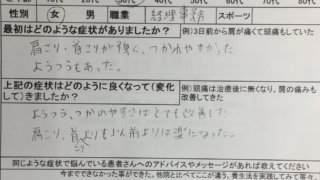 性別 男・女 職業 経理事務 スポーツ
最初はどのような症状がありましたか? 例)3日前から肩が痛くて頭痛もしていた
肩こり・首こりが強く、つかれやすかった
ようつうもあった。
上記の症状はどのように良くなって(変化)してきましたか? 例)頭痛は治療後に無くなり、肩の痛みも改善してきた
ようつう、つかれやすさはとても改善した
肩こり、首こりも以前よりは楽になった。
同じような症状で悩んでいる患者さんへのアドバイスやメッセージがあれば教えてください
今までできなかった事ができた、他院と比べてここが違う、養生法を実践してみて等